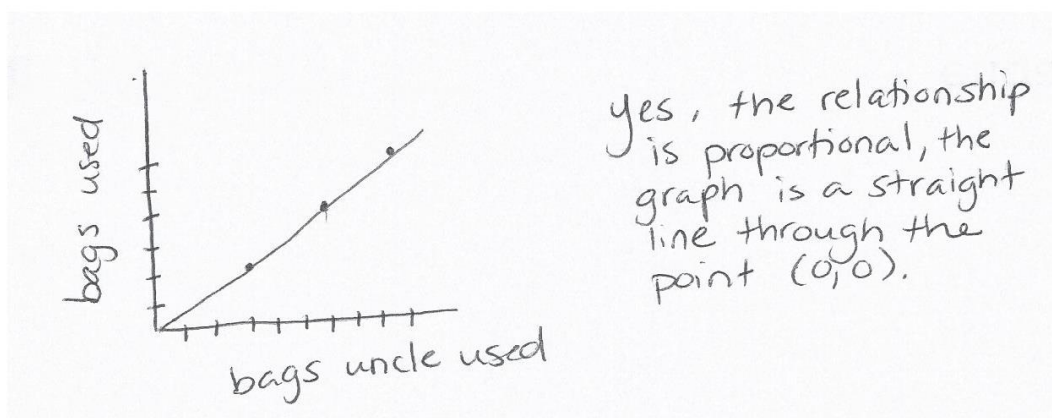 bags used
bags uncle used
yes, the relationship
is proportional, the
graph is a straight
line through the
point (0,0).